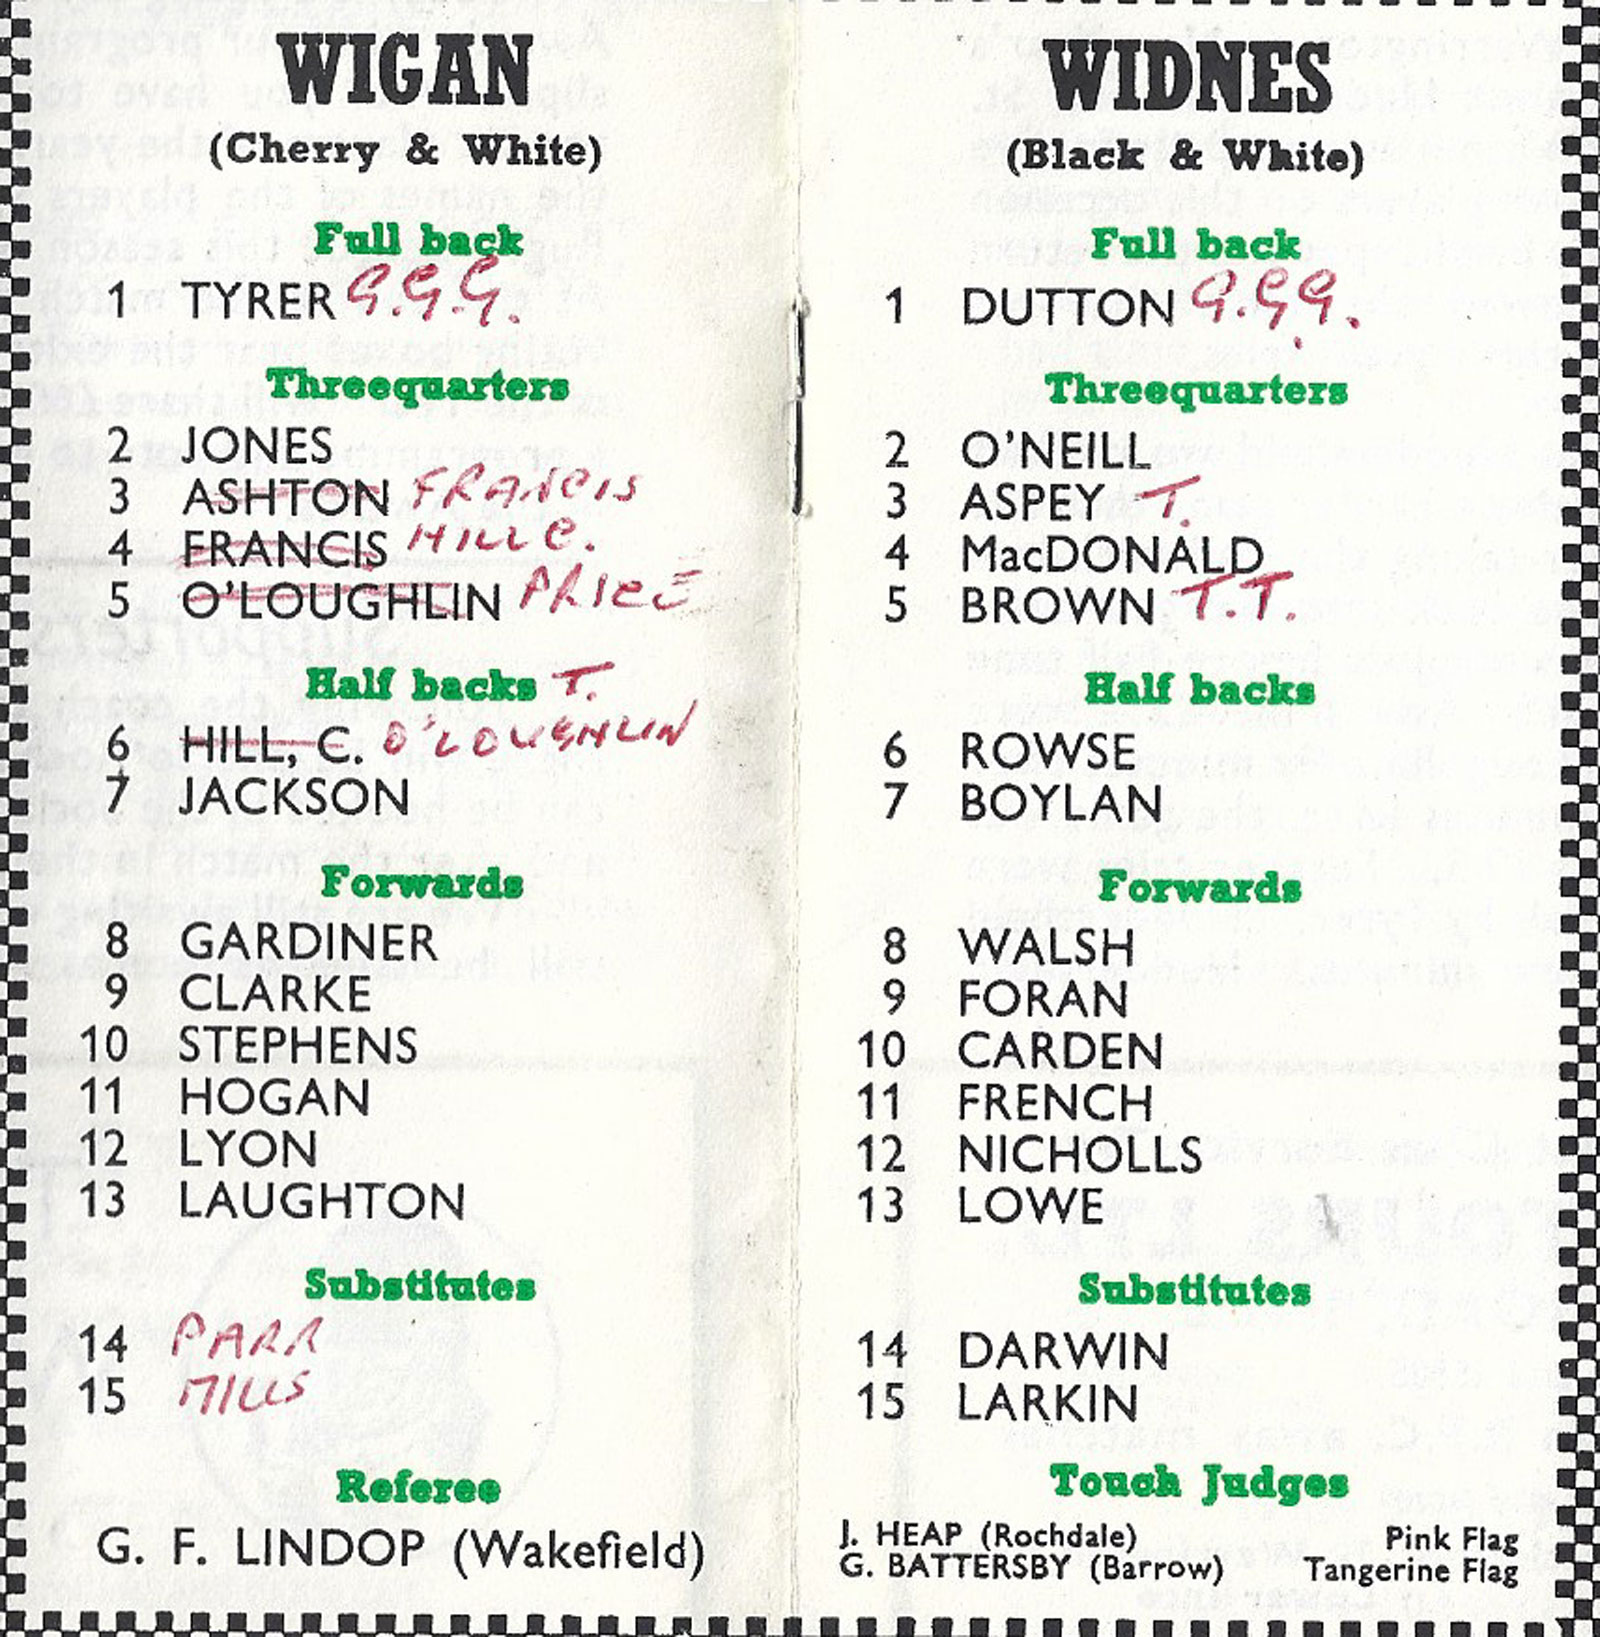 WIGAN
(Cherry & White)
Full back
1 TYRER G.G.G.
Threequarters
2 JONES
3 ASHTON FRANCIS
4 FRANCIS HILL C.
5 O'LOUGHLIN PRICE
Half backs T.
6 HILL, C. O'LOUGHLIN
7 JACKSON
Forwards
8 GARDINER
9 CLARKE
10 STEPHENS
11 HOGAN
12 LYON
13 LAUGHTON
Substitutes
14 PARR
15 MILLS
Referee
G. F. LINDOP (Wakefield)
WIDNES
(Black & White)
Full back
1 DUTTON G.G.G.
Threequarters
2 O'NEILL
3 ASPEY T.
4 MacDONALD
5 BROWN T.T.
Half backs
6 ROWSE
7 BOYLAN
Forwards
8 WALSH
9 FORAN
10 CARDEN
11 FRENCH
12 NICHOLLS
13 LOWE
Substitutes
14 DARWIN
15 LARKIN
Touch Judges
J. HEAP (Rochdale) Pink Flag
G. BATTERSBY (Barrow) Tangerine Flag